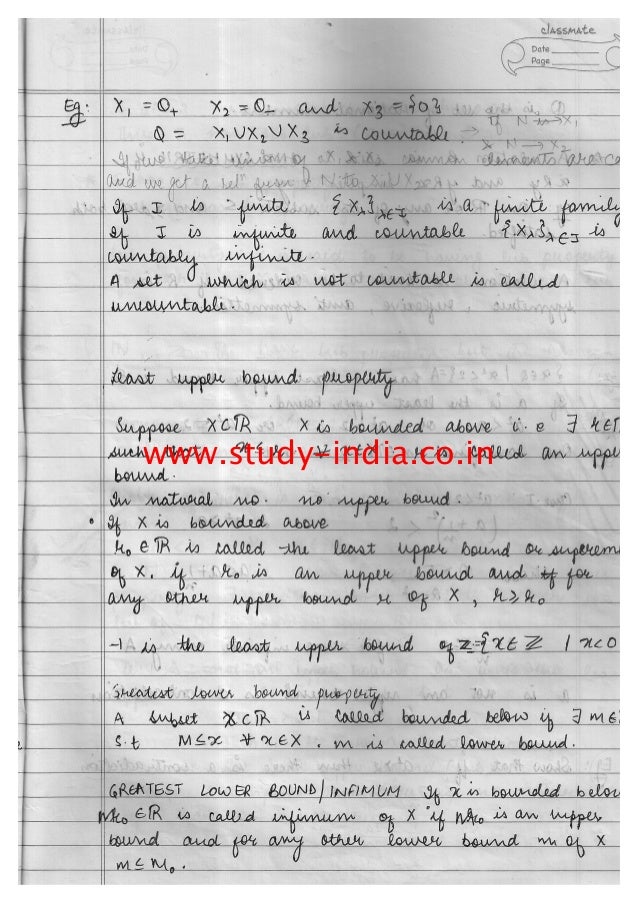 classmate
Date
Page
Eg: X₁ = Q₊ X₂ = Q₋ and X₃ = {0}
Q = X₁ ∪ X₂ ∪ X₃ is countable.
If I is finite {Xλ}λ∈I is a finite family
If I is infinite and countable {Xλ}λ∈I is
countably infinite.
A set which is not countable is called
uncountable.
Least upper bound property
Suppose X⊂ℝ X is bounded above i.e ∃ r∈
such that ∀ r is called an uppe
www.study-india.co.in
bound.
In natural no. no upper bound.
• If X is bounded above
r₀ ∈ ℝ is called the least upper bound or suprem
of X. if r₀ is an upper bound and if for
any other upper bound r of X, r ≥ r₀
-1 is the least upper bound of Z⁻={x∈ℤ | x<0
Greatest lower bound property
A subset X⊂ℝ is called bounded below if ∃ m∈
s.t m≤x ∀ x∈X. m is called lower bound.
GREATEST LOWER BOUND/INFIMUM If x is bounded below
m₀ ∈ℝ is called infimum of X if m₀ is an upper
bound and for any other lower bound m of X
m ≤ m₀.